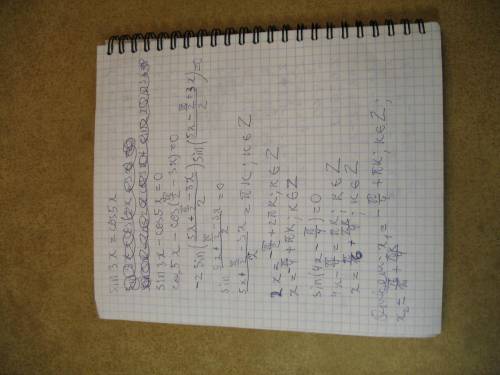 sin3x = cos5x
sin3x - cos5x = 0
cos5x - cos(π/2 - 3x) = 0
-2 sin((5x + π/2 - 3x)/2) sin((5x - π/2 + 3x)/2) = 0
sin (5x + π/2 - 3x)/2 = 0
(5x + π/2 - 3x)/2 = πk; k∈Z
2x = -π/2 + 2πk; k∈Z
x = -π/4 + πk, k∈Z
sin(4x - π/4) = 0
4x - π/4 = πk; k∈Z
x = π/16 + πk/4; k∈Z
x₁ = -π/4 + πk; k∈Z;
x₂ = π/16 + πk/4